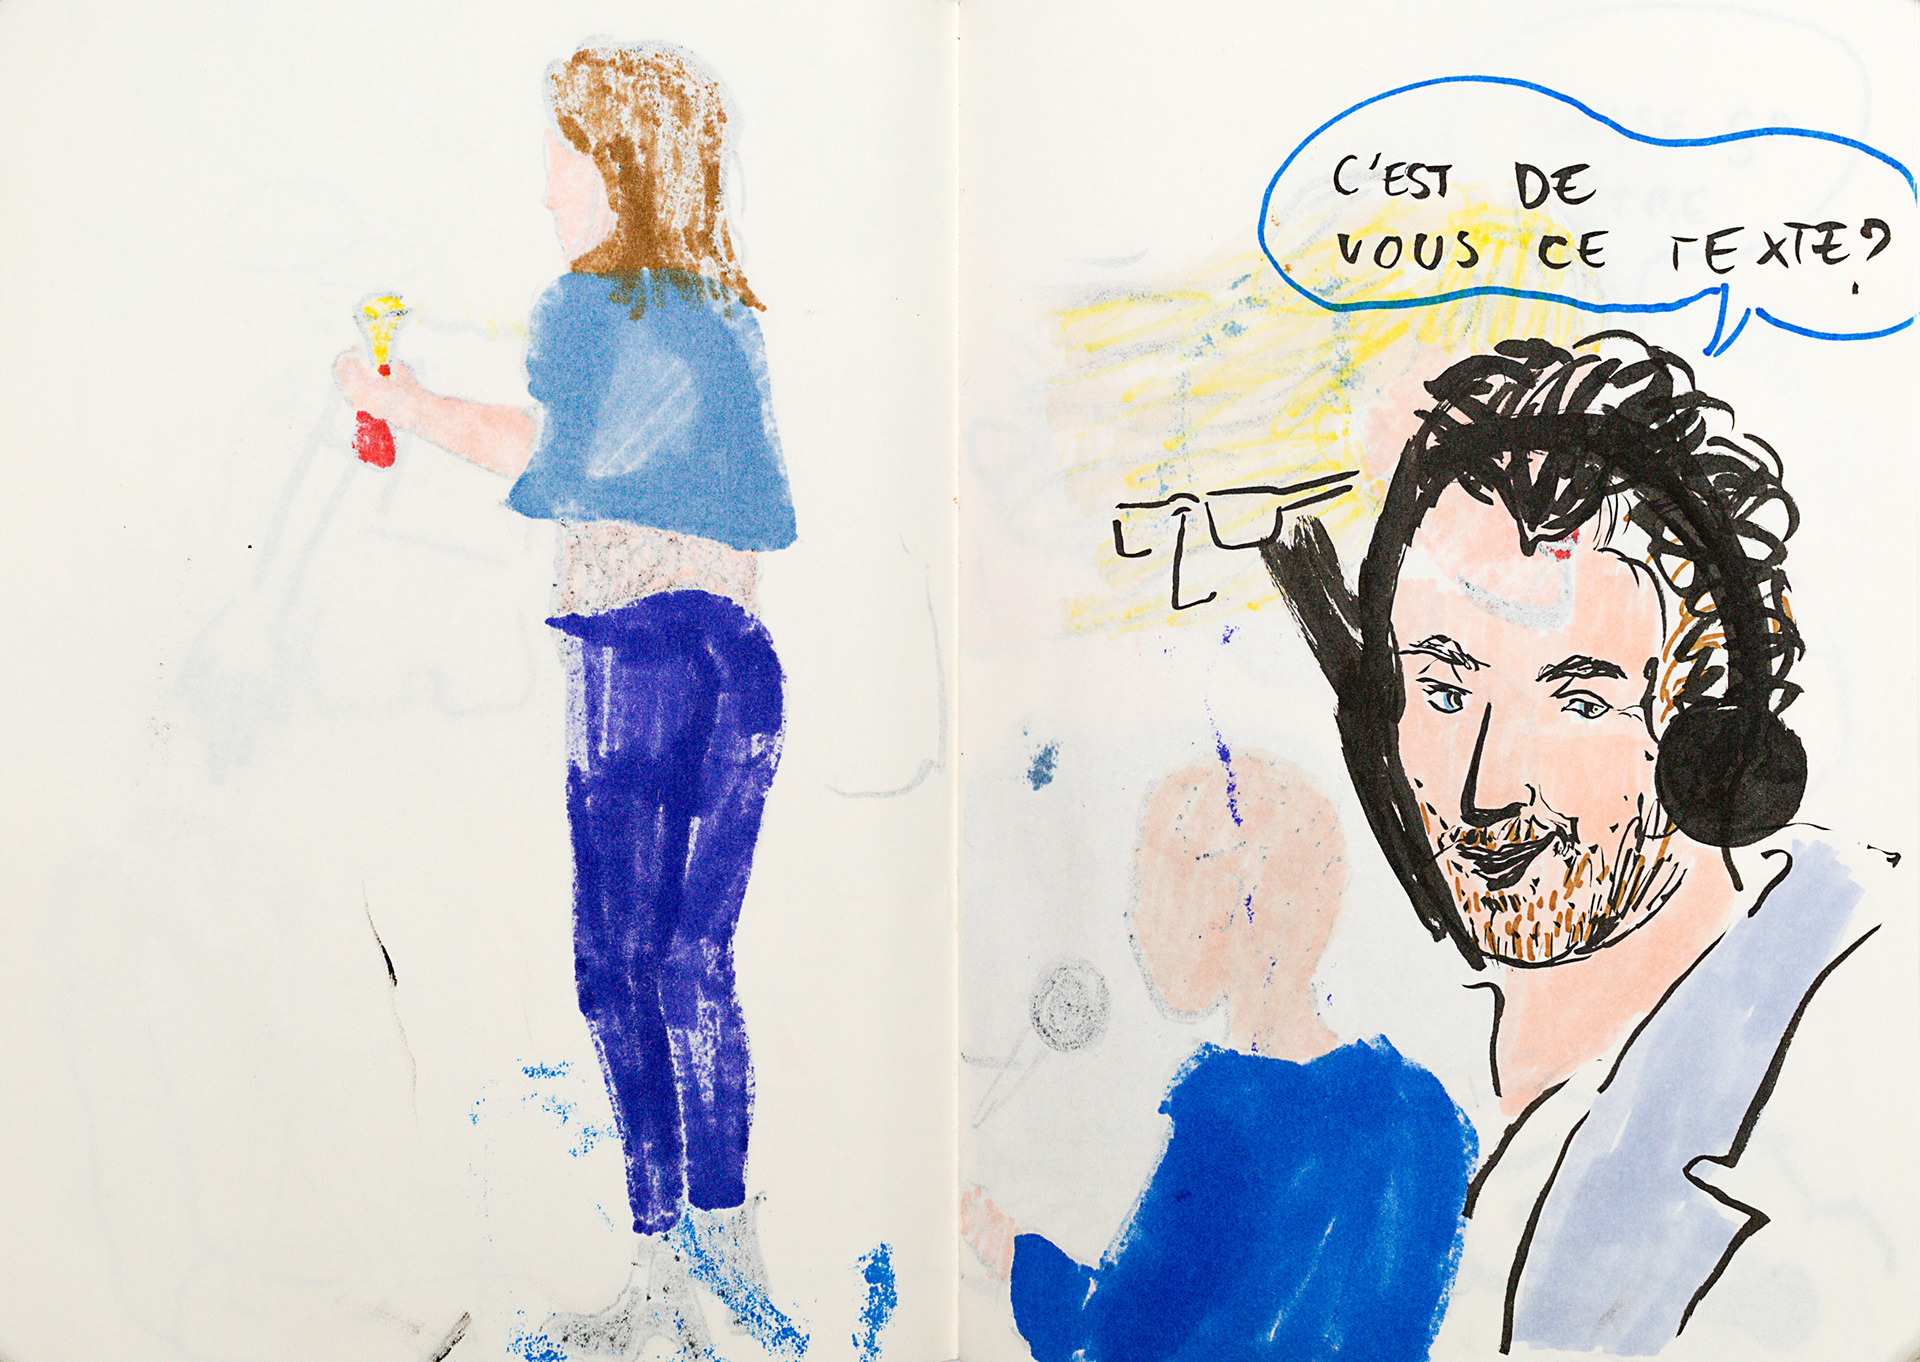 C'EST DE
VOUS CE TEXTE?